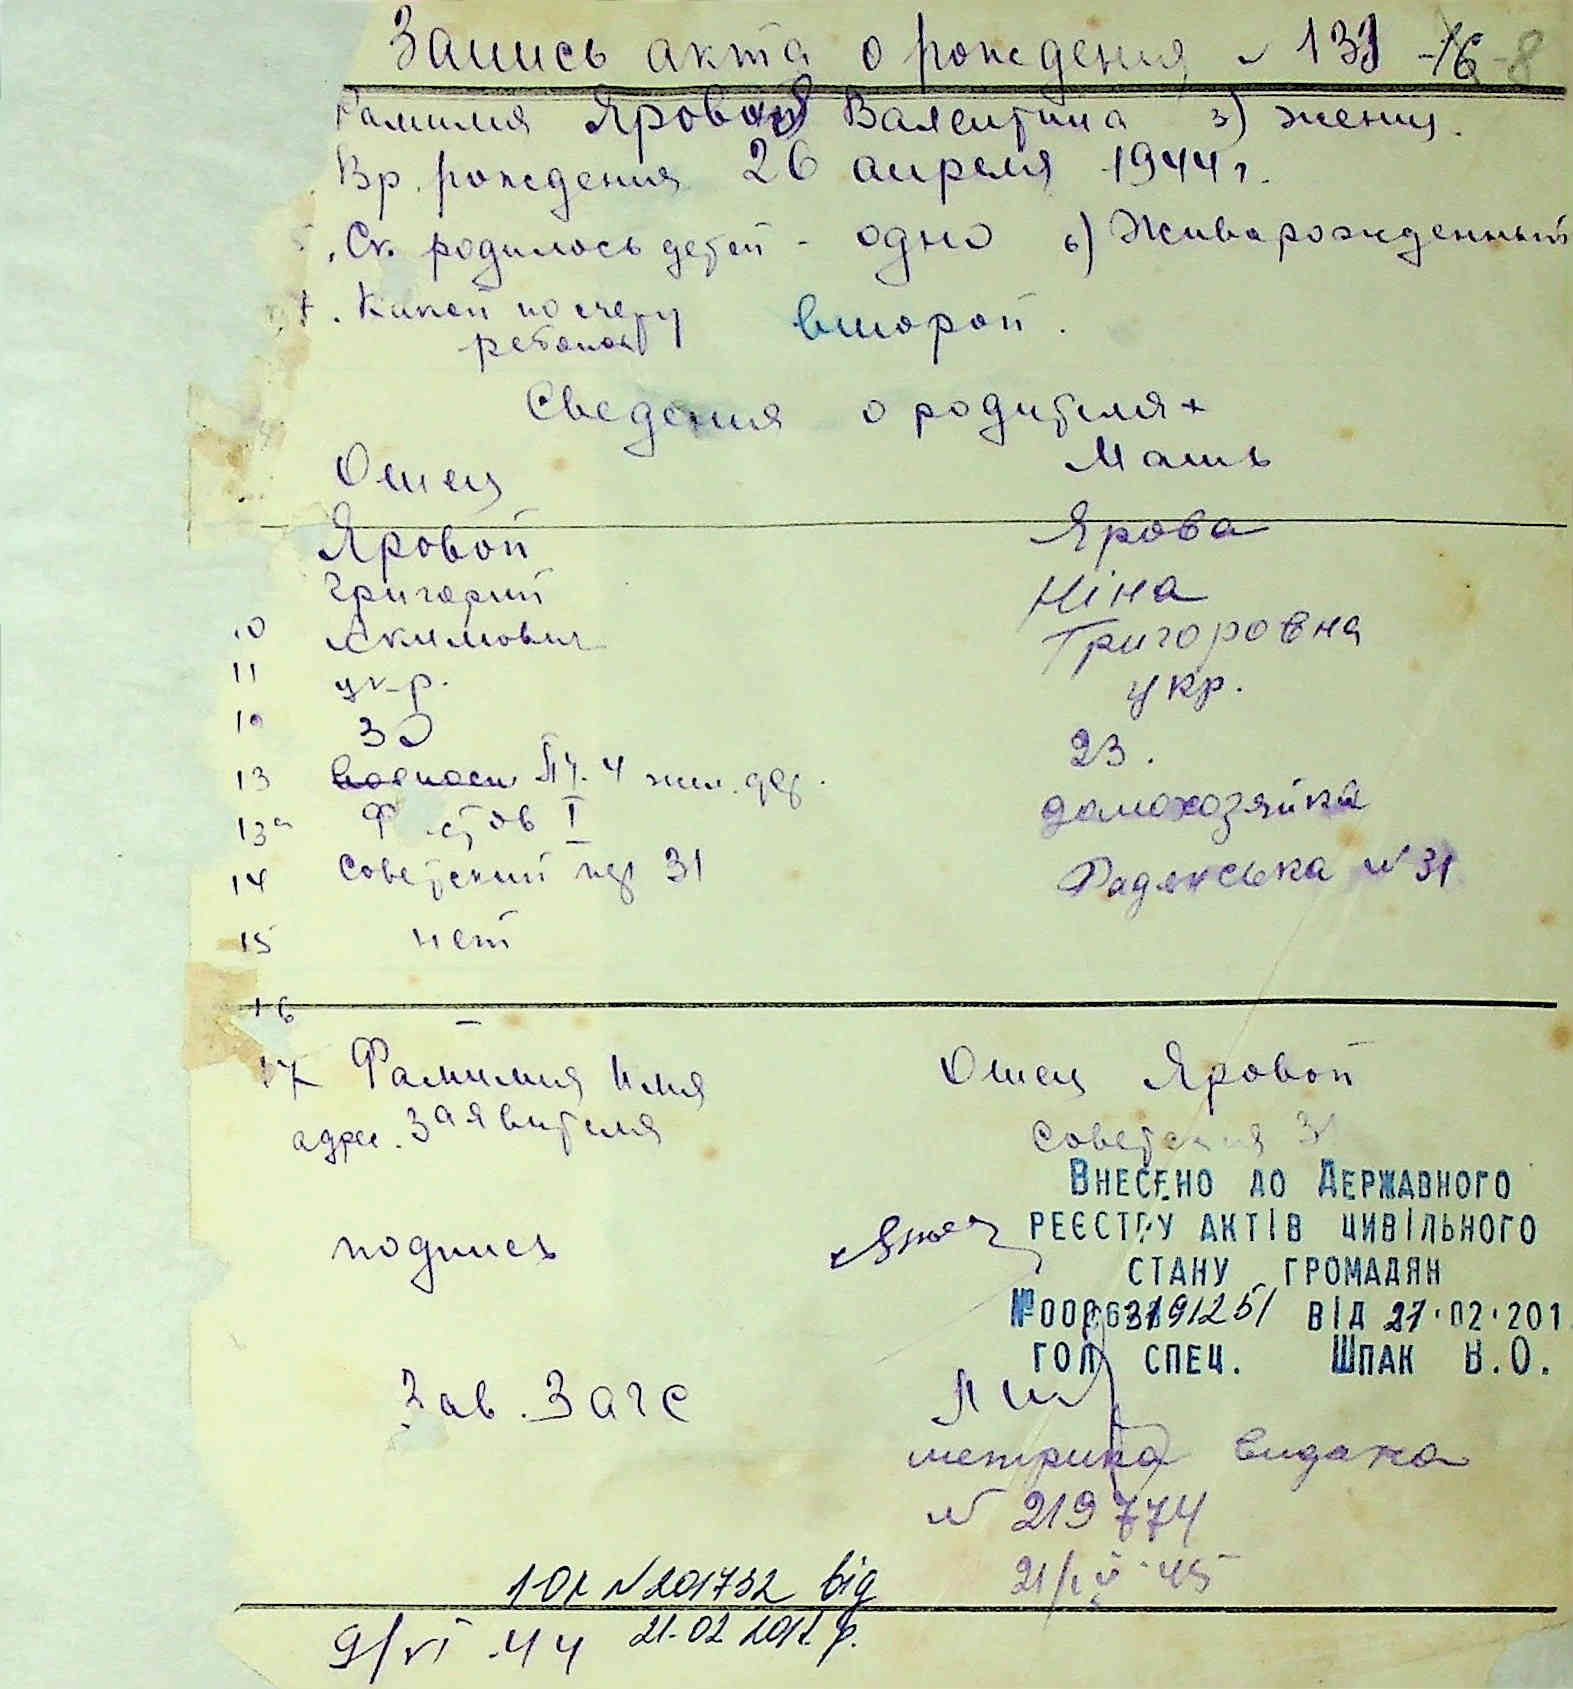 Запись акта о рождения № 131 -16-8
Фамилия Яровой Валентина 3) женщ.
Вр. рождения 26 апреля 1944 г.
5. Ск. родилось детей - одно 6) Живарожденный
7. Какой по счету
ребенок второй.
Сведения о родителях
Отец Мать
Яровой Ярова
Григорий Ніна
10 Акимович Григоровна
11 укр. укр.
23.
13 жил. домохозяйка
13а
14 Советский пер 31 Радянська № 31
15 нет
16 —
17 Фамилия Имя Отец Яровой
адрес. заявителя Советская 31
Внесено до Державного
реєстру актів цивільного
стану громадян
подпись
від 21.02.201
гол. спец. Шпак В.О.
Зав. Загс
метрика видана
№ 219774
№ 201732 від
21.02.2012 р.
9/VI.44